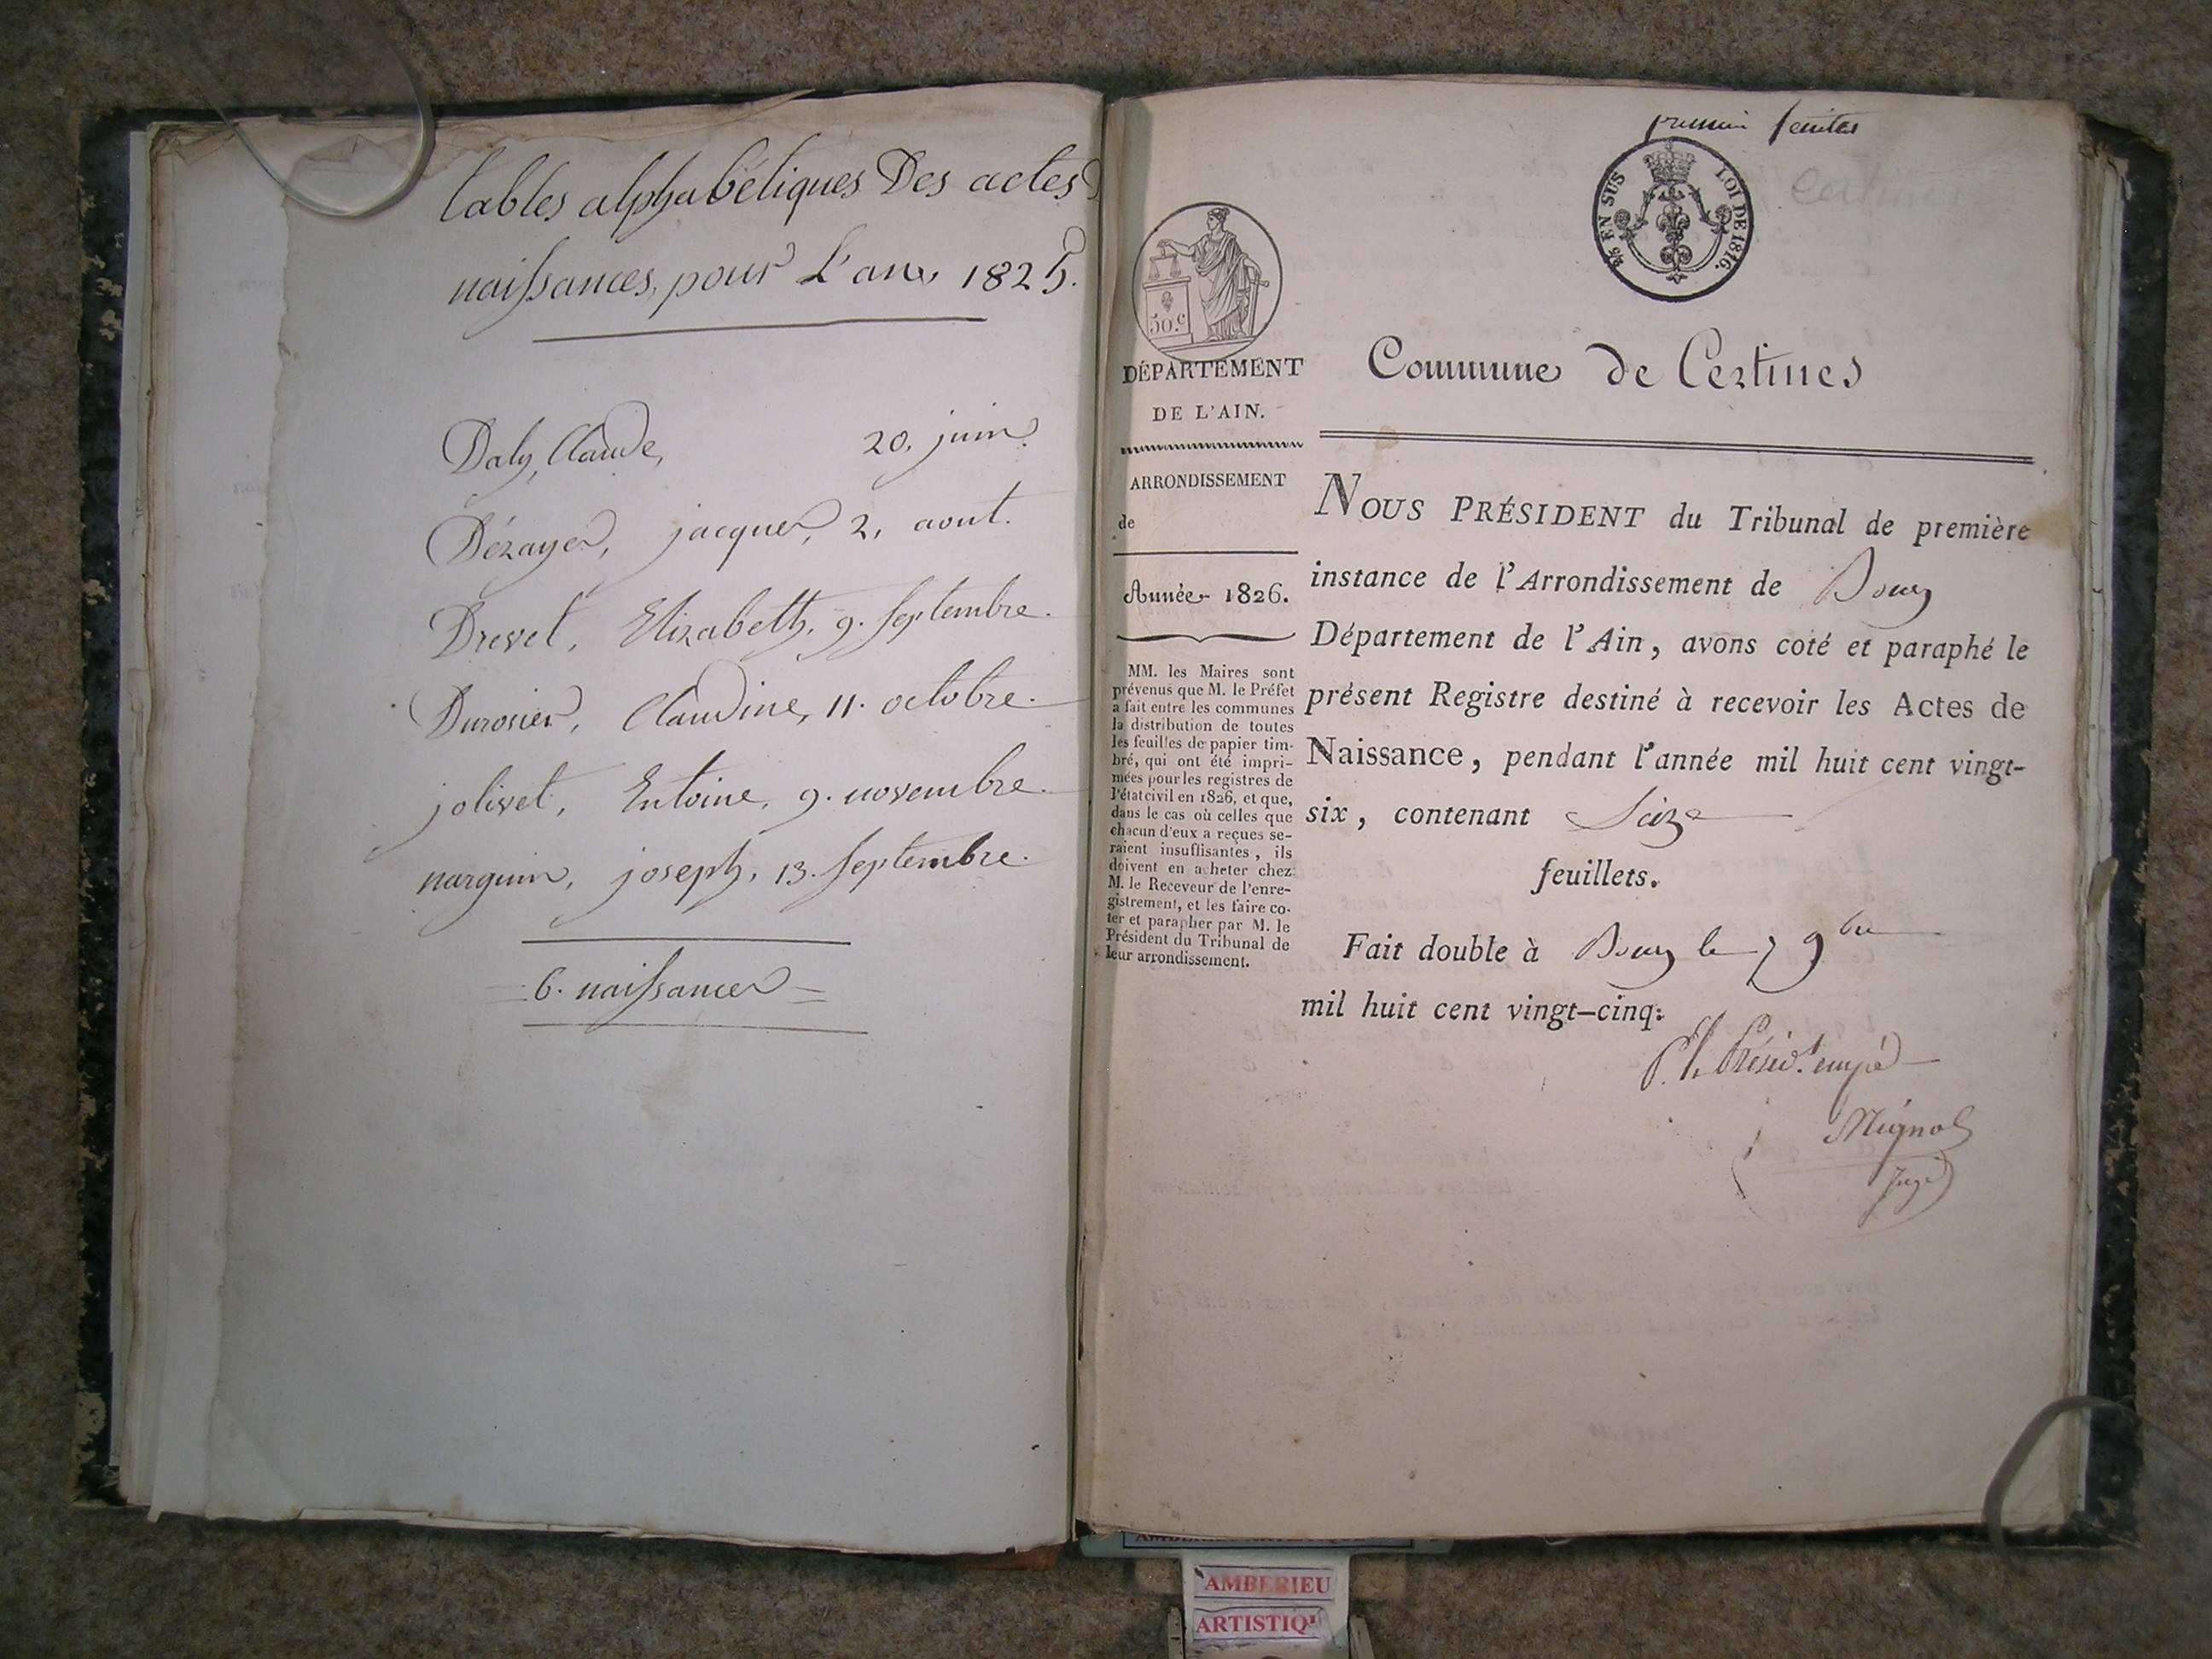 tables alphabétiques Des actes D
naissances, pour L'an 1825.
Daly, Claude, 20. juin.
Dézayer, jacques, 2. aout.
Drevet, Elizabeth, 9. Septembre.
Durosier, Claudine, 11. octobre.
jolivet, Entoine, 9. novembre.
narguin, joseph, 13. Septembre.
6. naissances
premier feuillet
EN SUS
LOI DE 1816.
50.c
DÉPARTEMENT
DE L'AIN.
ARRONDISSEMENT
de
Année 1826.
MM. les Maires sont
prévenus que M. le Préfet
a fait entre les communes
la distribution de toutes
les feuilles de papier tim-
bré, qui ont été impri-
mées pour les registres de
l'état civil en 1826, et que,
dans le cas où celles que
chacun d'eux a reçues se-
raient insuffisantes, ils
doivent en acheter chez
M. le Receveur de l'enre-
gistrement, et les faire co-
ter et parapher par M. le
Président du Tribunal de
leur arrondissement.
Commune de Certines
NOUS PRÉSIDENT du Tribunal de première
instance de l'Arrondissement de Bourg
Département de l'Ain, avons coté et paraphé le
présent Registre destiné à recevoir les Actes de
Naissance, pendant l'année mil huit cent vingt-
six, contenant Seize
feuillets.
Fait double à Bourg le 7 9bre
mil huit cent vingt-cinq.
P. le Présidt. empé
Mignot
Juge
AMBERIEU
ARTISTIQU